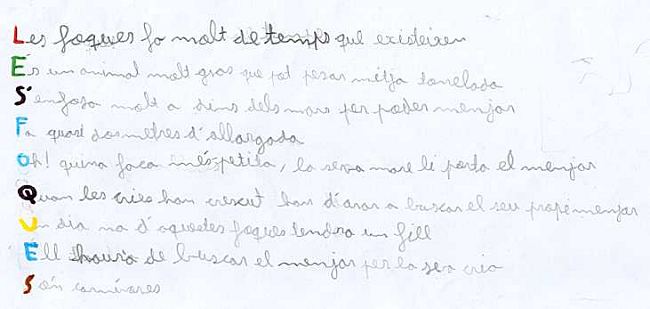 Les foques fa molt de temps que existeixen
És un animal molt gros que pot pesar mitja tonelada
S'enfosa molt a dins dels mars per poder menjar
Fa quasi dos metres d'allargada
Oh! quina foca més petita, la seva mare li porta el menjar
Quan les cries han crescut han d'anar a buscar el seu propi menjar
Un dia una d'aquestes foques tendra un fill
Ell haura de buscar el menjar per la seva cria
Són carnívores